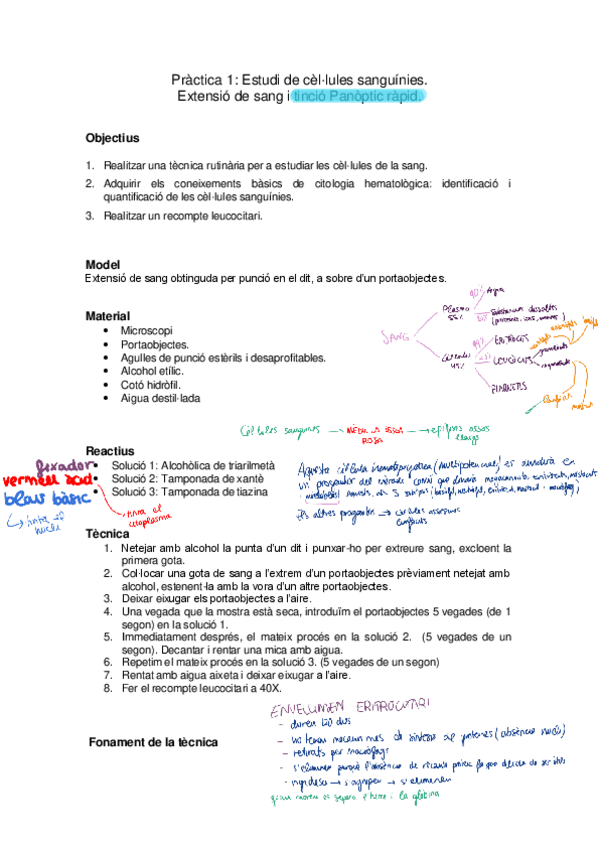 Pràctica 1: Estudi de cèl·lules sanguínies.
Extensió de sang i tinció Panòptic ràpid.
Objectius
1. Realitzar una tècnica rutinària per a estudiar les cèl·lules de la sang.
2. Adquirir els coneixements bàsics de citologia hematològica: identificació i
quantificació de les cèl·lules sanguínies.
3. Realitzar un recompte leucocitari.
Model
Extensió de sang obtinguda per punció en el dit, a sobre d'un portaobjectes.
Material
• Microscopi
• Portaobjectes.
• Agulles de punció estèrils i desaprofitables.
• Alcohol etílic.
• Cotó hidròfil.
• Aigua destil·lada
SANG
Plasma
55%
90% Aigua
Substàncies dissoltes
Cèl·lules
45%
ERITRÒCITS
LEUCÒCITS
PLAQUETES
Cèl·lules sanguínies → MÈDUL·LA ÒSSEA
ROJA → epífisis ossos
llargs
Reactius
fixador • Solució 1: Alcohòlica de triarilmetà
vermell àcid • Solució 2: Tamponada de xantè
blau bàsic • Solució 3: Tamponada de tiazina
→ tinta el
nucli
tinta el
citoplasma
Aquesta cèl·lula hematopoyètica (multipotencial) es
un progenitor del mieloide comú que donarà
Els altres progenitor → cèl·lules assassines
Tècnica
1. Netejar amb alcohol la punta d'un dit i punxar-ho per extreure sang, excloent la
primera gota.
2. Col·locar una gota de sang a l'extrem d'un portaobjectes prèviament netejat amb
alcohol, estenent-la amb la vora d'un altre portaobjectes.
3. Deixar eixugar els portaobjectes a l'aire.
4. Una vegada que la mostra està seca, introduïm el portaobjectes 5 vegades (de 1
segon) en la solució 1.
5. Immediatament després, el mateix procés en la solució 2. (5 vegades de un
segon). Decantar i rentar una mica amb aigua.
6. Repetim el mateix procés en la solució 3. (5 vegades de un segon)
7. Rentat amb aigua aixeta i deixar eixugar a l'aire.
8. Fer el recompte leucocitari a 40X.
ENVELLIMENT ERITROCITARI
- duren 120 dies
- no tenen mecanismes de síntesi de proteïnes (absència nucli)
- retirats per macròfags
- s'eliminen perquè l'absència de
→ s'agrupen → s'eliminen
quan moren es separa l'hemo i la globina
Fonament de la tècnica